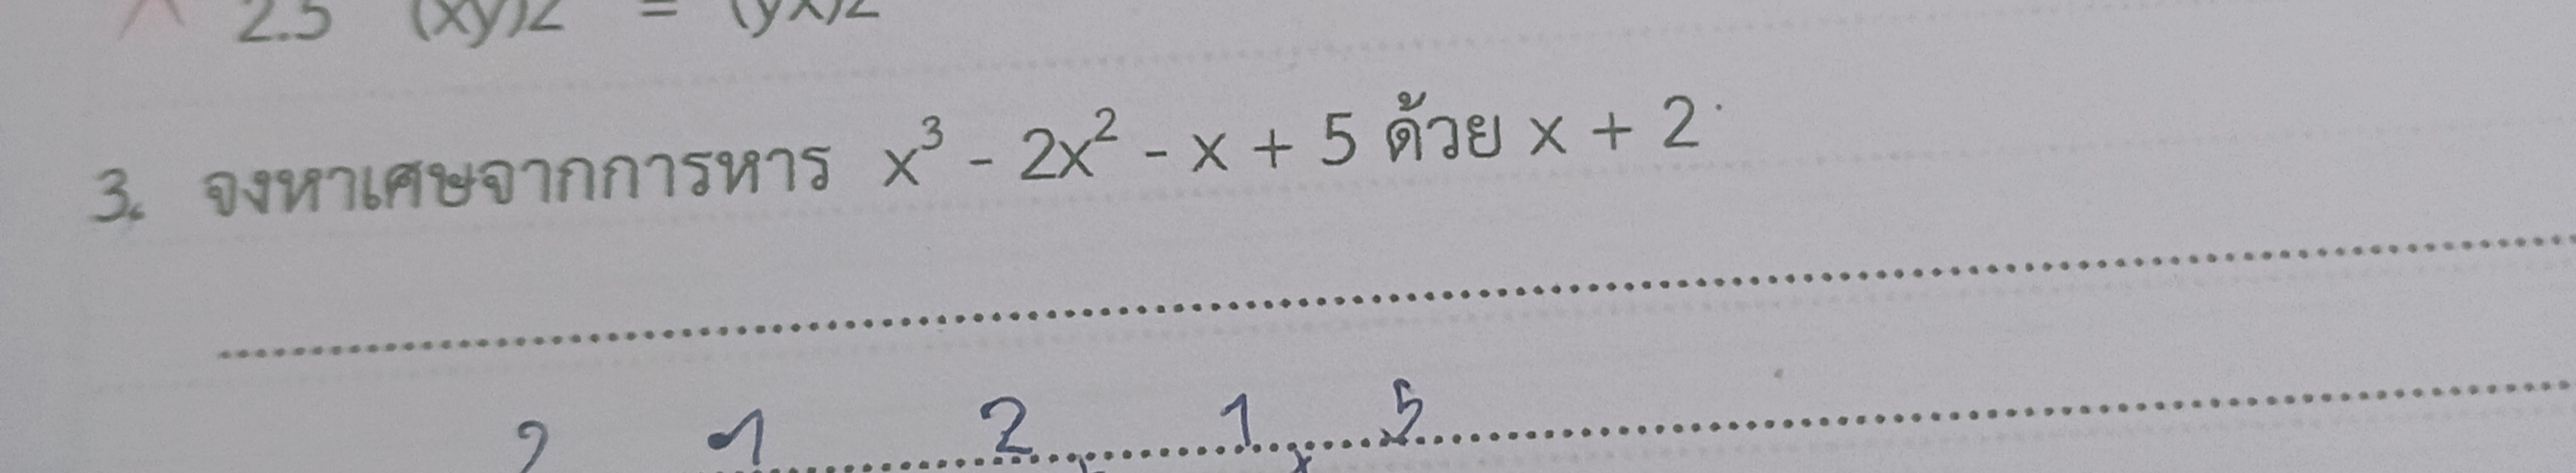 2.5 (xy)z = (yx)z
3. จงหาเศษจากการหาร x³ - 2x² - x + 5 ด้วย x + 2
2 1 2 1 5